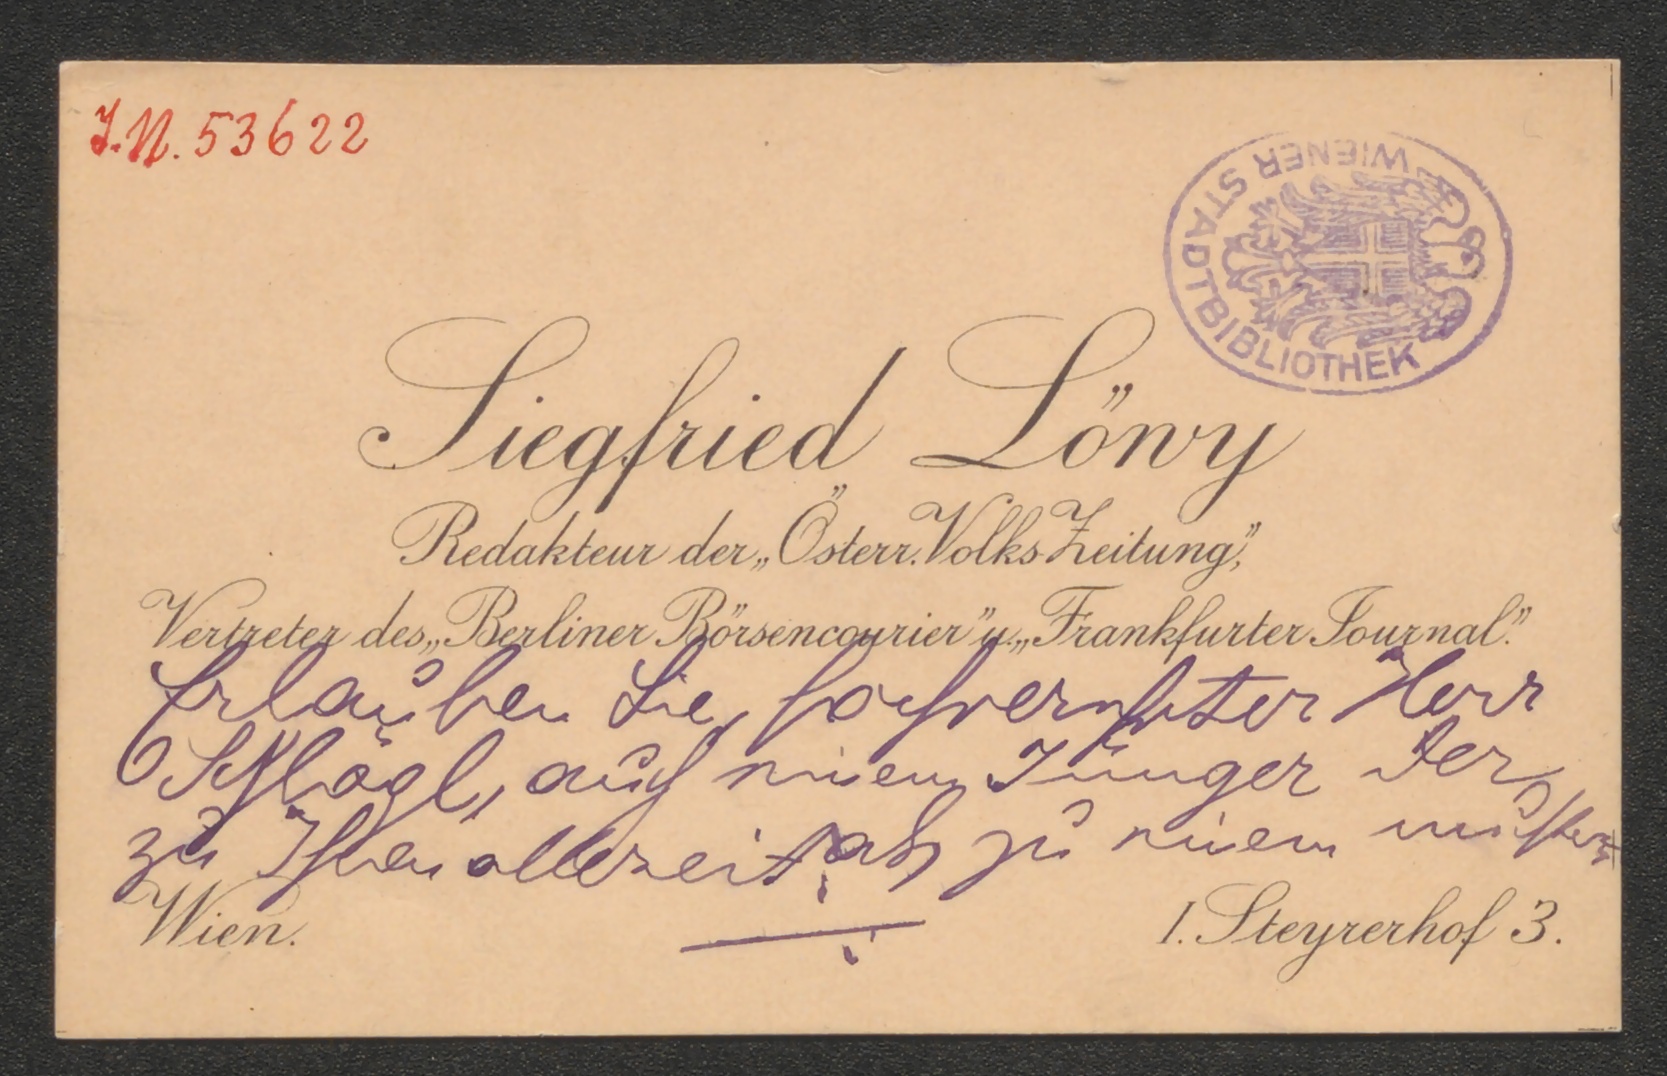 J.N. 53622
WIENER STADTBIBLIOTHEK
Siegfried Löwy
Redakteur der „Österr. Volks-Zeitung”,
Vertreter des „Berliner Börsencourier” u. „Frankfurter Journal.”
Erlauben Sie, hochverehrter Herr
Schlögl, auch einem Jünger der
zu Ihnen allezeit als zu einem
Wien.
I. Steyrerhof 3.